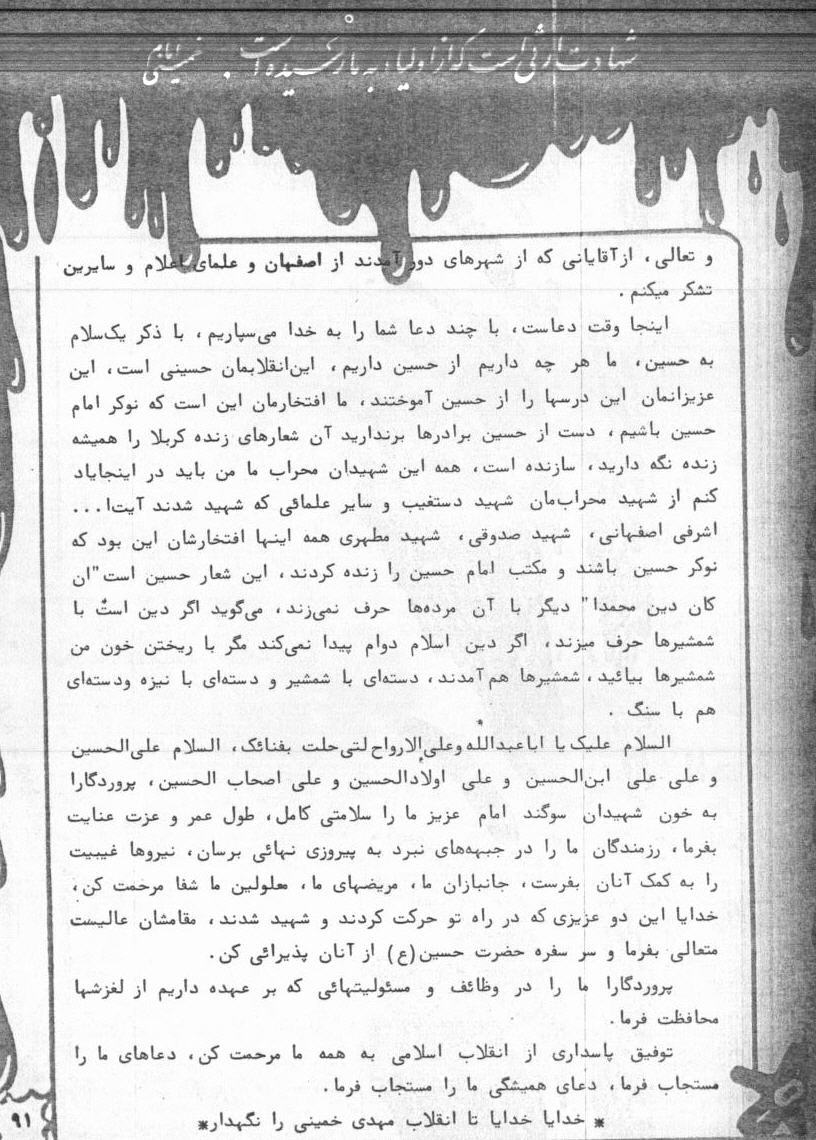 شهادت ارثی است که از اولیاء به ما رسیده است. امام خمینی
و تعالی، ازآقایانی که از شهرهای دور آمدند از اصفهان و علمای اعلام و سایرین
تشکر میکنم.
اینجا وقت دعاست، با چند دعا شما را به خدا می‌سپاریم، با ذکر یک‌سلام
به حسین، ما هر چه داریم از حسین داریم، این‌انقلابمان حسینی است، این
عزیزانمان این درسها را از حسین آموختند، ما افتخارمان این است که نوکر امام
حسین باشیم، دست از حسین برادرها برندارید آن شعارهای زنده کربلا را همیشه
زنده نگه دارید، سازنده است، همه این شهیدان محراب ما من باید در اینجایاد
کنم از شهید محراب‌مان شهید دستغیب و سایر علمائی که شهید شدند آیت‌ا...
اشرفی اصفهانی، شهید صدوقی، شهید مطهری همه اینها افتخارشان این بود که
نوکر حسین باشند و مکتب امام حسین را زنده کردند، این شعار حسین است"ان
کان دین محمدا" دیگر با آن مرده‌ها حرف نمی‌زند، می‌گوید اگر دین است با
شمشیرها حرف میزند، اگر دین اسلام دوام پیدا نمی‌کند مگر با ریختن خون من
شمشیرها بیائید، شمشیرها هم‌آمدند، دسته‌ای با شمشیر و دسته‌ای با نیزه ودسته‌ای
هم با سنگ .
السلام علیک یا اباعبدالله وعلی‌الارواح لتی‌حلت بفنائک، السلام علی‌الحسین
و علی علی ابن‌الحسین و علی اولادالحسین و علی اصحاب الحسین، پروردگارا
به خون شهیدان سوگند امام عزیز ما را سلامتی کامل، طول عمر و عزت عنایت
بفرما، رزمندگان ما را در جبهه‌های نبرد به پیروزی نهائی برسان، نیروها غیبیت
را به کمک آنان بفرست، جانبازان ما، مریضهای ما، معلولین ما شفا مرحمت کن،
خدایا این دو عزیزی که در راه تو حرکت کردند و شهید شدند، مقامشان عالیست
متعالی بفرما و سر سفره حضرت حسین(ع) از آنان پذیرائی کن.
پروردگارا ما را در وظائف و مسئولیتهائی که بر عهده داریم از لغزشها
محافظت فرما.
توفیق پاسداری از انقلاب اسلامی به همه ما مرحمت کن، دعاهای ما را
مستجاب فرما، دعای همیشگی ما را مستجاب فرما.
* خدایا خدایا تا انقلاب مهدی خمینی را نگهدار*
۹۱